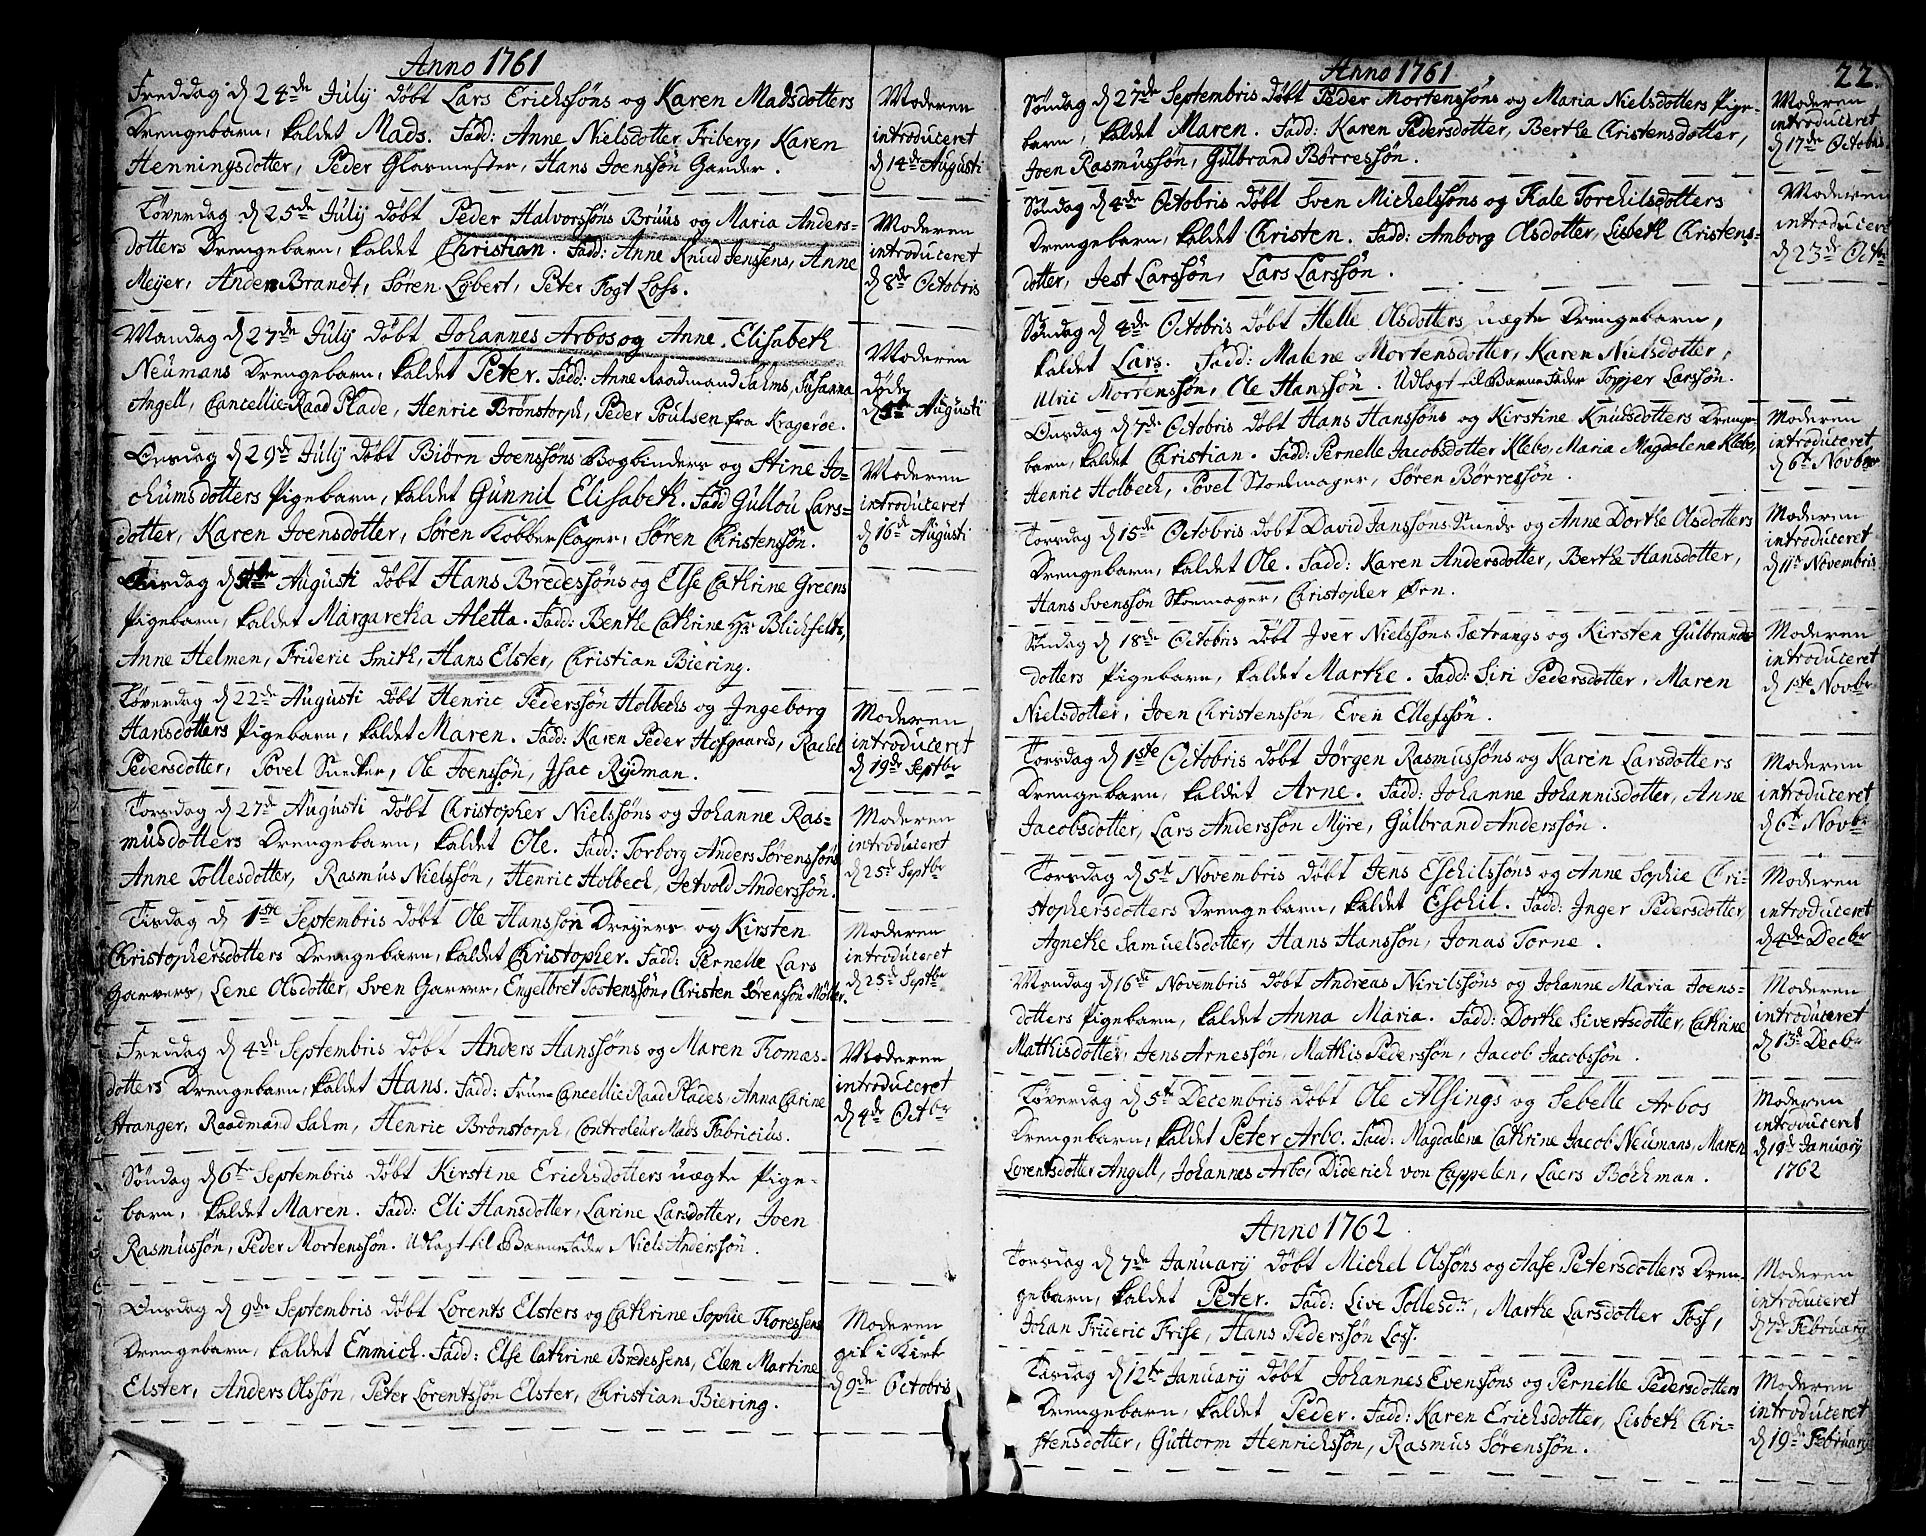 Anno 1761
Freddag d 24de Julij döbt Lars Erichssöns og Karen Madsdotters
Drengebarn, kaldet Mads. Fadd: Anne Nielsdotter Friberg, Karen
Henningsdotter, Peder Glasmester, Hans Joenssön Garder.
Moderen
introduceret
d 14de Augusti
Löverdag d 25de Julij döbt Peder Halvorssöns Bruus og Maria Anders-
dotters Drengebarn, kaldet Christian. Fadd: Anne Knud Jenssens, Anne
Meyer, Anden Brandt, Sören Egbert, Peter Fogt Loss.
Moderen
introduceret
d 8de Octobris
Mandag d 27de Julij döbt Johannes Arbos og Anne Elisabeth
Neumans Drengebarn, kaldet Peter. Fadd: Anne Raadmand Salms, Susanna
Angell, Cancellie-Raad Plade, Henric Brönstorph, Peder Poulsen fra Krageröe.
Moderen
döde
Augusti
Onsdag d 29de Julij döbt Biörn Joenssöns Bogbinders og Stine Jo-
chumsdotters Pigebarn, kaldet Gunnil Elisabeth. Fadd Gullou Lars-
dotter, Karen Joensdotter, Sören Kobberslager, Sören Christenssön.
Moderen
introduceret
d 16de Augusti
d Augusti döbt Hans Bredessöns og Else Cathrine Greens
Pigebarn, kaldet Margaretha Aletta. Fadd: Benthe Cathrine Hr Blichfeldts,
Anne Helmen, Frideric Smith, Hans Elster, Christian Biering.
Löverdag d 22de Augusti döbt Henric Pederssön Holbechs og Ingeborg
Hansdotters Pigebarn, kaldet Maren. Fadd: Karen Peder Hofgaards, Rachel
Pedersdotter, Povel Snecker, Ole Joenssön, Isac Rydman.
Moderen
introduceret
d 19de Septbr
Torsdag d 27de Augusti döbt Christopher Nielssöns og Johanne Ras-
musdotters Drengebarn, kaldet Ole. Fadd: Torborg Anders Sörenssöns
Anne Tollesdotter, Rasmus Nielssön, Henric Holbech, Jetvold Anderssön.
Moderen
introduceret
d 25de Septbr
Tirsdag d 1ste Septembris döbt Ole Hanssön Dreyers og Kirsten
Christophersdotters Drengebarn, kaldet Christopher. Fadd: Pernelle Lars
Garvers, Lene Olsdotter, Sven Garver, Engelbret Tostenssön, Christen Sörenssön Möller.
Moderen
introduceret
d 25de Septbr
Fredag d 4de Septembris döbt Anders Hanssöns og Maren Thomas-
dotters Drengebarn, kaldet Hans. Fadd: Frue Cancellie Raad Plades, Anna Carine
Stranger, Raadmand Salm, Henric Brönstorph, Controleur Mads Fabricius.
Moderen
introduceret
d 4de Octbr
Söndag d 6te Septembris döbt Kirstine Erichsdotters uægte Pige-
barn, kaldet Maren. Fadd: Eli Hansdotter, Larine Larsdotter, Joen
Rasmussön, Peder Mortenssön. Udlagt til Barnefader Niels Anderssön.
Onsdag d 9de Septembris döbt Lorents Elsters og Cathrine Sophie Thoressens
Drengebarn, kaldet Emmich. Fadd: Else Cathrine Bredessens, Elen Martine
Elster, Anders Olssön, Peter Lorentssön Elster, Christian Biering.
Moderen
gik i Kirk
d 9de Octobris
Anno 1761
22.
Söndag d 27de Septembris döbt Peder Mortenssöns og Maria Nielsdotters Pige-
barn, kaldet Maren. Fadd: Karen Pedersdotter, Berthe Christensdotter,
Joen Rasmussön, Gulbrand Börressön.
Moderen
introduceret
d 17de Octobris
Söndag d 4de Octobris döbt Sven Michelssöns og Kale Torchilsdotters
Drengebarn, kaldet Christen. Fadd: Anborg Olsdotter, Lisbeth Christens-
dotter, Jest Larssön, Lars Larssön.
Moderen
introduceret
d 23de Octbr
Söndag d 4de Octobris döbt Helle Olsdotters uægte Drengebarn,
kaldet Lars. Fadd: Malene Mortensdotter, Karen Nielsdotter,
Ulric Mortenssön, Ole Hanssön. Udlagt til Barnefader Topjer Larssön.
Onsdag d 7de Octobris döbt Hans Hanssöns og Kirstine Knudsdotters Drenge-
barn, kaldet Christian. Fadd: Pernelle Jacobsdotter Klebo, Maria Magdalene Klebo,
Henric Holbech, Povel Stoelmager, Sören Börressön.
Moderen
introduceret
d 6te Novbr
Torsdag d 15de Octobris döbt David Janssöns Smeds og Anne Dorthe Olsdotters
Drengebarn, kaldet Ole. Fadd: Karen Andersdotter, Berthe Hansdotter,
Hans Svenssön Skoemager, Christopher Örn.
Moderen
introduceret
d 11te Novembris
Söndag d 18de Octobris döbt Jver Nielssöns Sætrangs og Kirsten Gulbrands-
dotters Pigebarn, kaldet Marthe. Fadd: Siri Pedersdotter, Maren
Nielsdotter, Joen Christenssön, Even Ellefssön.
Moderen
introduceret
d 1ste Novbr
Torsdag d 1ste Octobris döbt Jörgen Rasmussöns og Karen Larsdotters
Drengebarn, kaldet Arne. Fadd: Johanne Johannisdotter, Anne
Jacobsdotter, Lars Anderssön Myre, Gulbrand Anderssön.
Moderen
introduceret
d 6te Novbr
Torsdag d 5te Novembris döbt Jens Eschilssöns og Anne Sophie Chri-
stophersdotters Drengebarn, kaldet Eschil. Fadd: Inger Pedersdotter,
Agnethe Samuelsdotter, Hans Hanssön, Jonas Torne.
Moderen
introduceret
d 4de Decbr
Mandag d 16de Novembris döbt Andreas Nirilssöns og Johanne Maria Joens-
dotters Pigebarn, kaldet Anna Maria. Fadd: Dorthe Sivertsdotter, Cathrine
Mathisdotter, Jens Arnessön, Mathis Pederssön, Jacob Jacobssön.
Moderen
introduceret
d 13de Decbr
Löverdag d 5te Decembris döbt Ole Alsings og Sebelle Arbos
Drengebarn, kaldet Peter Arbo. Fadd: Magdalene Cathrine Jacob Neumans, Maren
Lorentsdotter Angell, Johannes Arbo, Diderich von Cappelen, Laers Böchman.
Moderen
introduceret
d 19de January
1762
Anno 1762
Torsdag d 7de January döbt Michel Olssöns og Aase Petersdotters Dren-
gebarn, kaldet Peter. Fadd: Live Tollesdr, Marthe Larsdotter Foss,
Johan Frideric Frise, Hans Pederssön Loss.
Moderen
introduceret
d 7de February
Tirsdag d 12te January döbt Johannes Evenssöns og Pernelle Pedersdotters
Drengebarn, kaldet Peder. Fadd: Karen Erichsdotter, Lisbeth Chri-
stensdotter, Guttorm Henrichssön, Rasmus Sörenssön.
Moderen
introduceret
d 19de February